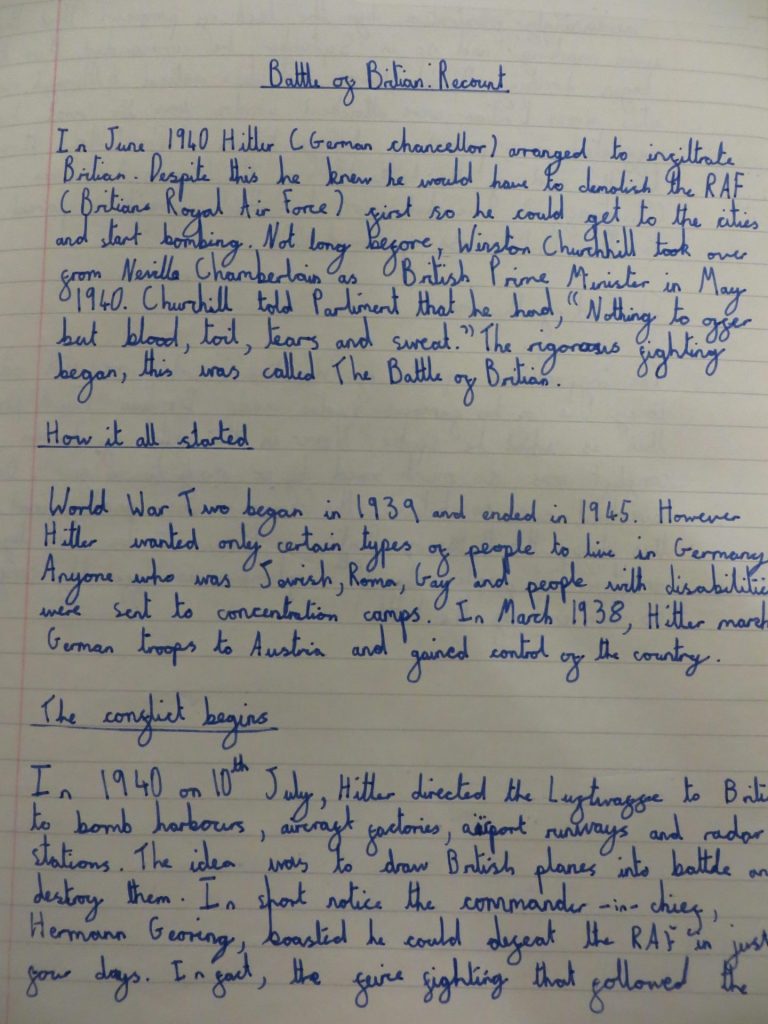 Battle of Britian: Recount
In June 1940 Hitler (German chancellor) arranged to infiltrate
Britian. Despite this he knew he would have to demolish the RAF
(Britians Royal Air Force) first so he could get to the cities
and start bombing. Not long before, Winston Churchhill took over
from Neville Chamberlain as British Prime Minister in May
1940. Churchill told Parliment that he had, "Nothing to offer
but blood, toil, tears and sweat." The rigorous fighting
began, this was called The Battle of Britian.
How it all started
World War Two began in 1939 and ended in 1945. However
Hitler wanted only certain types of people to live in Germany.
Anyone who was Jewish, Roma, Gay and people with disabilitie
were sent to concentration camps. In March 1938, Hitler march
German troops to Austria and gained control of the country.
The conflict begins
In 1940 on 10th July, Hitler directed the Luftwaffe to Briti
to bomb harbours, aircraft factories, airport runways and radar
stations. The idea was to draw British planes into battle an
destroy them. In short notice the commander-in-chief,
Hermann Georing, boasted he could defeat the RAF in just
four days. In fact, the feirce fighting that followed the